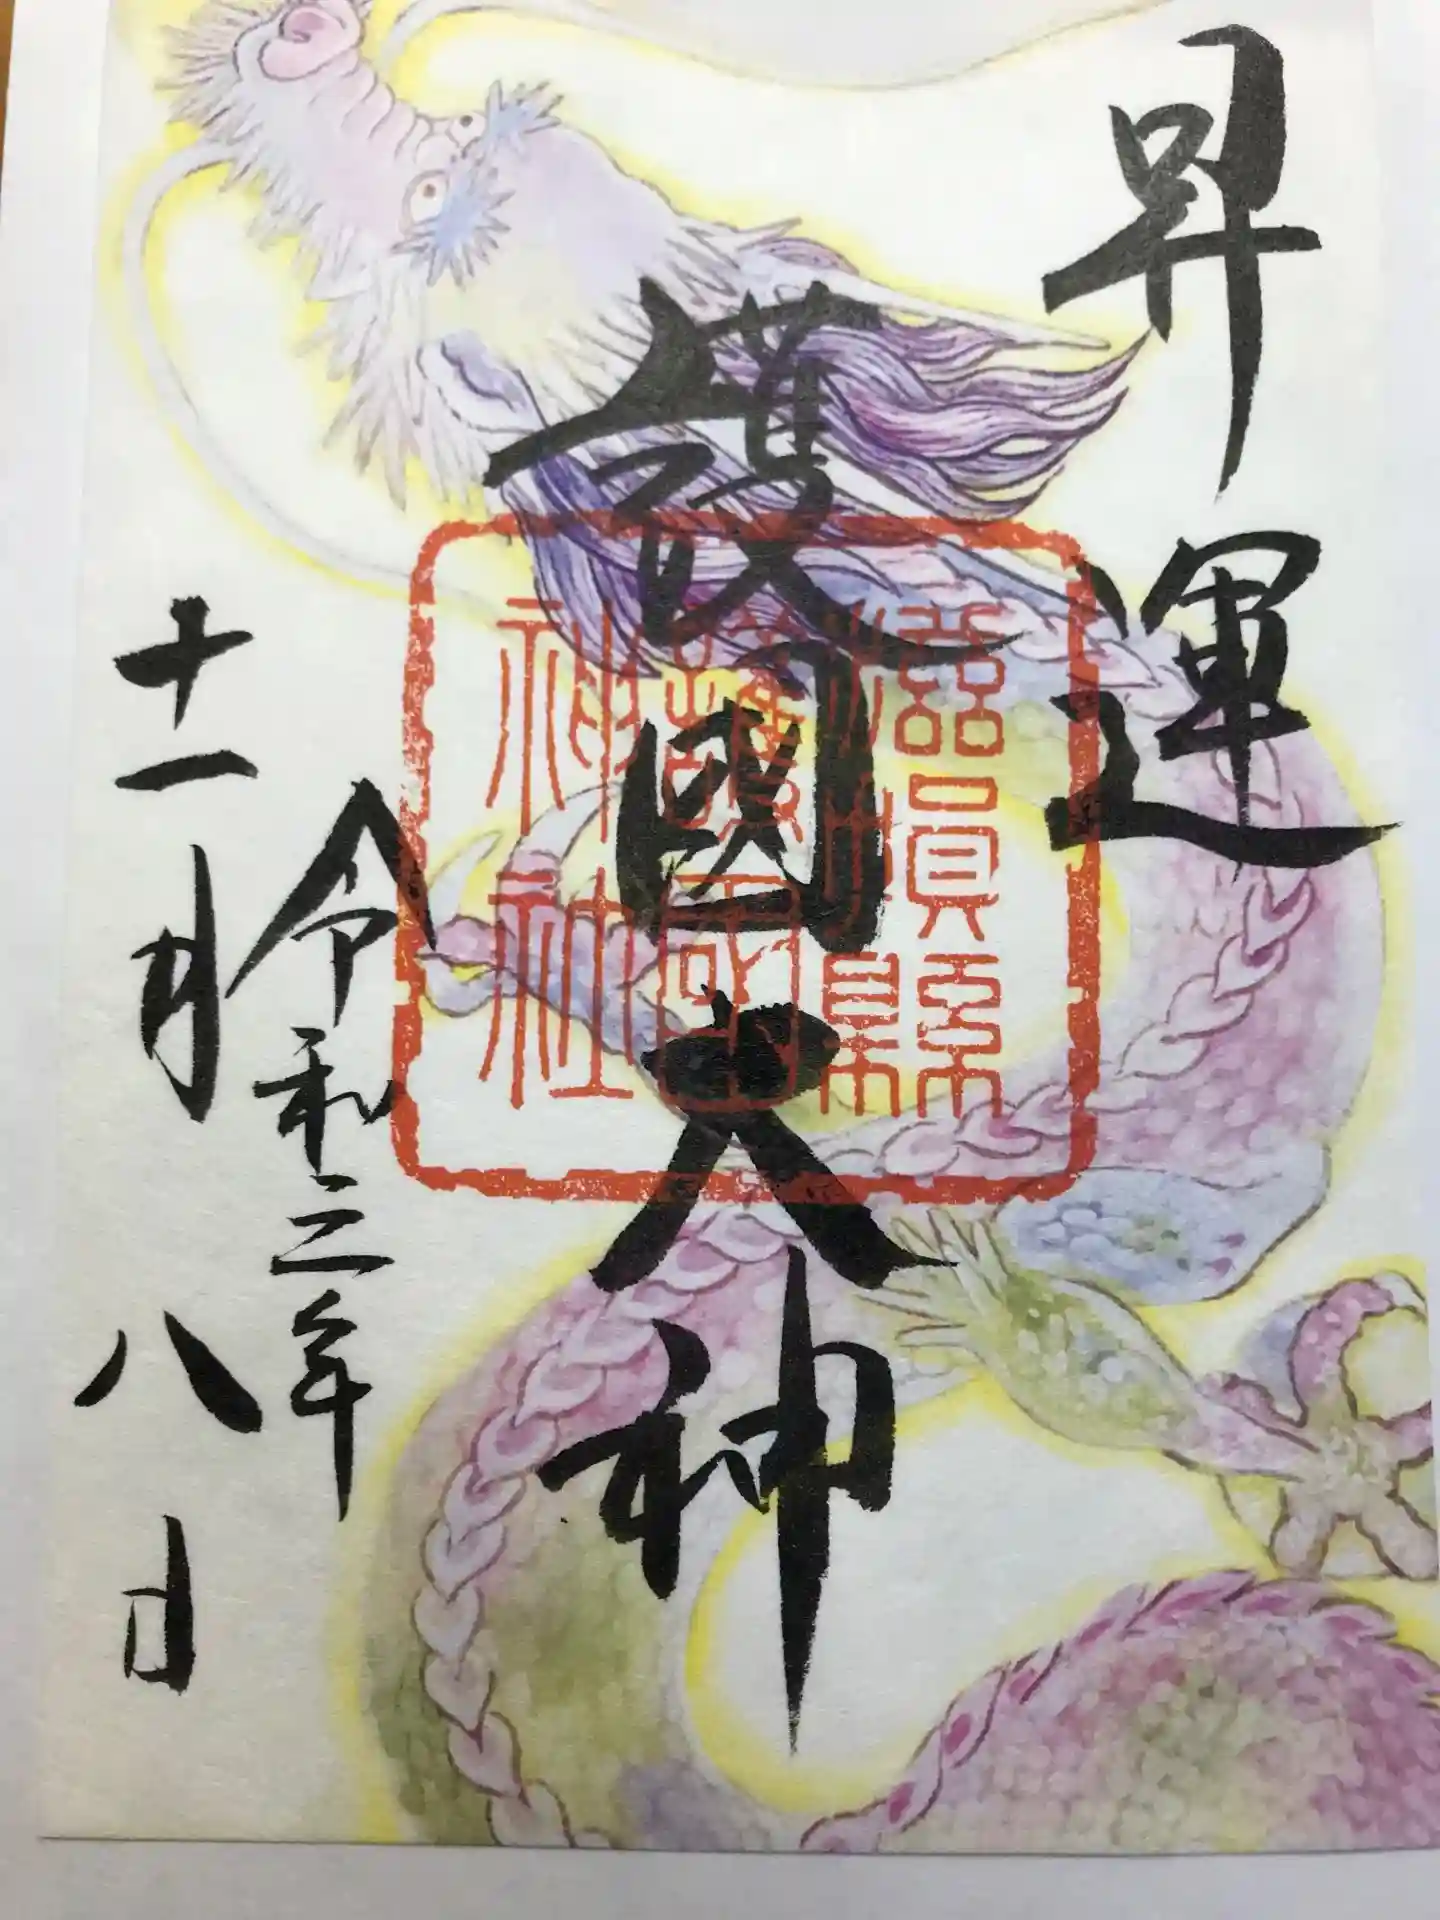 昇運
護國大神
滋賀縣
護國
神社
令和二年
十一月八日